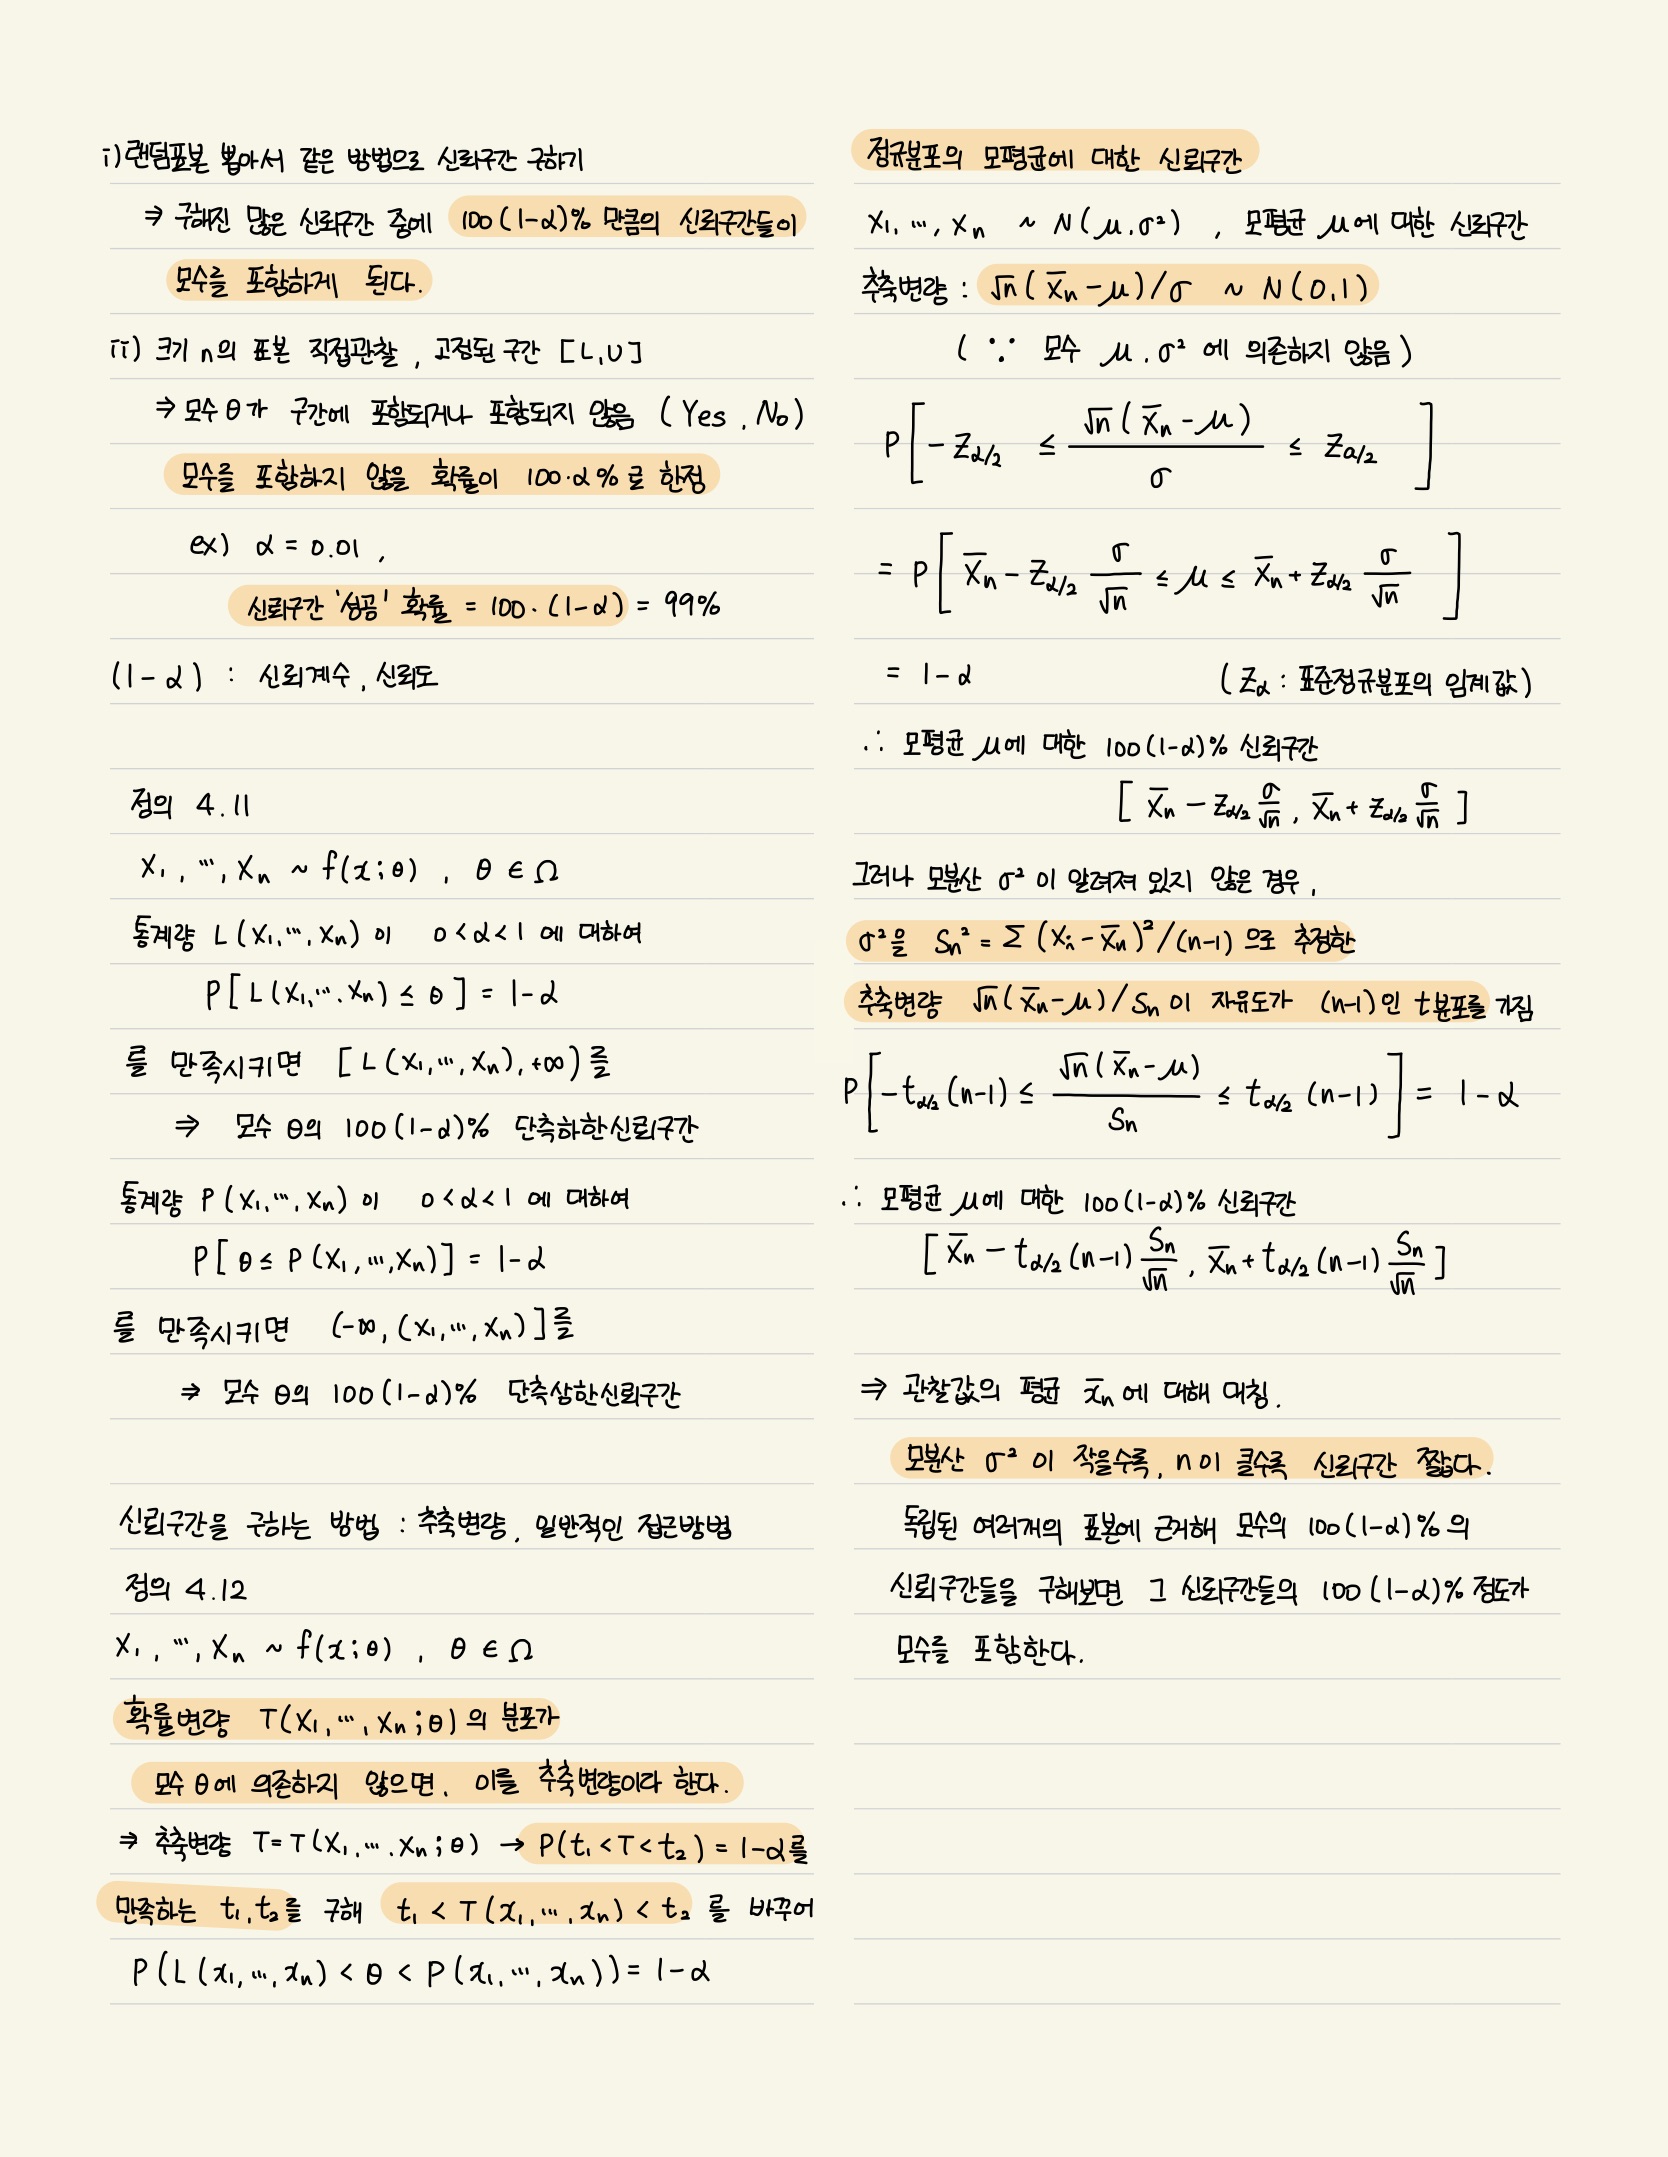 i) 랜덤표본 뽑아서 같은 방법으로 신뢰구간 구하기
⇒ 구해진 많은 신뢰구간 중에 100(1-α)% 만큼의 신뢰구간들이
모수를 포함하게 된다.
ii) 크기 n의 표본 직접관찰, 고정된 구간 [L, U]
⇒ 모수 θ가 구간에 포함되거나 포함되지 않음 (Yes, No)
모수를 포함하지 않을 확률이 100·α%로 한정
ex) α = 0.01,
신뢰구간 '성공' 확률 = 100·(1-α) = 99%
(1-α) : 신뢰계수, 신뢰도
정의 4.11
X₁, ⋯, Xn ~ f(x;θ), θ ∈ Ω
통계량 L(X₁, ⋯, Xn)이 0<α<1에 대하여
P[L(X₁, ⋯, Xn) ≤ θ] = 1-α
를 만족시키면 [L(X₁, ⋯, Xn), +∞)를
⇒ 모수 θ의 100(1-α)% 단측하한신뢰구간
통계량 P(X₁, ⋯, Xn)이 0<α<1에 대하여
P[θ ≤ P(X₁, ⋯, Xn)] = 1-α
를 만족시키면 (-∞, (X₁, ⋯, Xn)]를
⇒ 모수 θ의 100(1-α)% 단측상한신뢰구간
신뢰구간을 구하는 방법 : 추축변량, 일반적인 접근방법
정의 4.12
X₁, ⋯, Xn ~ f(x;θ), θ ∈ Ω
확률변량 T(X₁, ⋯, Xn;θ)의 분포가
모수 θ에 의존하지 않으면, 이를 추축변량이라 한다.
⇒ 추축변량 T=T(X₁, ⋯, Xn;θ) → P(t₁<T<t₂) = 1-α를
만족하는 t₁, t₂를 구해 t₁ < T(x₁, ⋯, xn) < t₂를 바꾸어
P(L(x₁, ⋯, xn) < θ < P(x₁, ⋯, xn)) = 1-α
정규분포의 모평균에 대한 신뢰구간
X₁, ⋯, Xn ~ N(μ, σ²), 모평균 μ에 대한 신뢰구간
추축변량 : √n(X̄n-μ)/σ ~ N(0,1)
(∵ 모수 μ, σ²에 의존하지 않음)
P[-Zα/2 ≤ √n(X̄n-μ)/σ ≤ Za/2]
= P[X̄n - Zα/2 σ/√n ≤ μ ≤ X̄n + Zα/2 σ/√n]
= 1-α (Zα : 표준정규분포의 임계값)
∴ 모평균 μ에 대한 100(1-α)% 신뢰구간
[X̄n - Zα/2 σ/√n, X̄n + Zα/2 σ/√n]
그러나 모분산 σ²이 알려져 있지 않은 경우,
σ²을 Sn² = Σ(Xi-X̄n)²/(n-1)으로 추정한
추축변량 √n(X̄n-μ)/Sn이 자유도가 (n-1)인 t분포를 가짐
P[-tα/2(n-1) ≤ √n(X̄n-μ)/Sn ≤ tα/2(n-1)] = 1-α
∴ 모평균 μ에 대한 100(1-α)% 신뢰구간
[X̄n - tα/2(n-1) Sn/√n, X̄n + tα/2(n-1) Sn/√n]
⇒ 관찰값의 평균 x̄n에 대해 대칭.
모분산 σ²이 작을수록, n이 클수록 신뢰구간 짧다.
독립된 여러개의 표본에 근거해 모수의 100(1-α)%의
신뢰구간들을 구해보면 그 신뢰구간들의 100(1-α)% 정도가
모수를 포함한다.